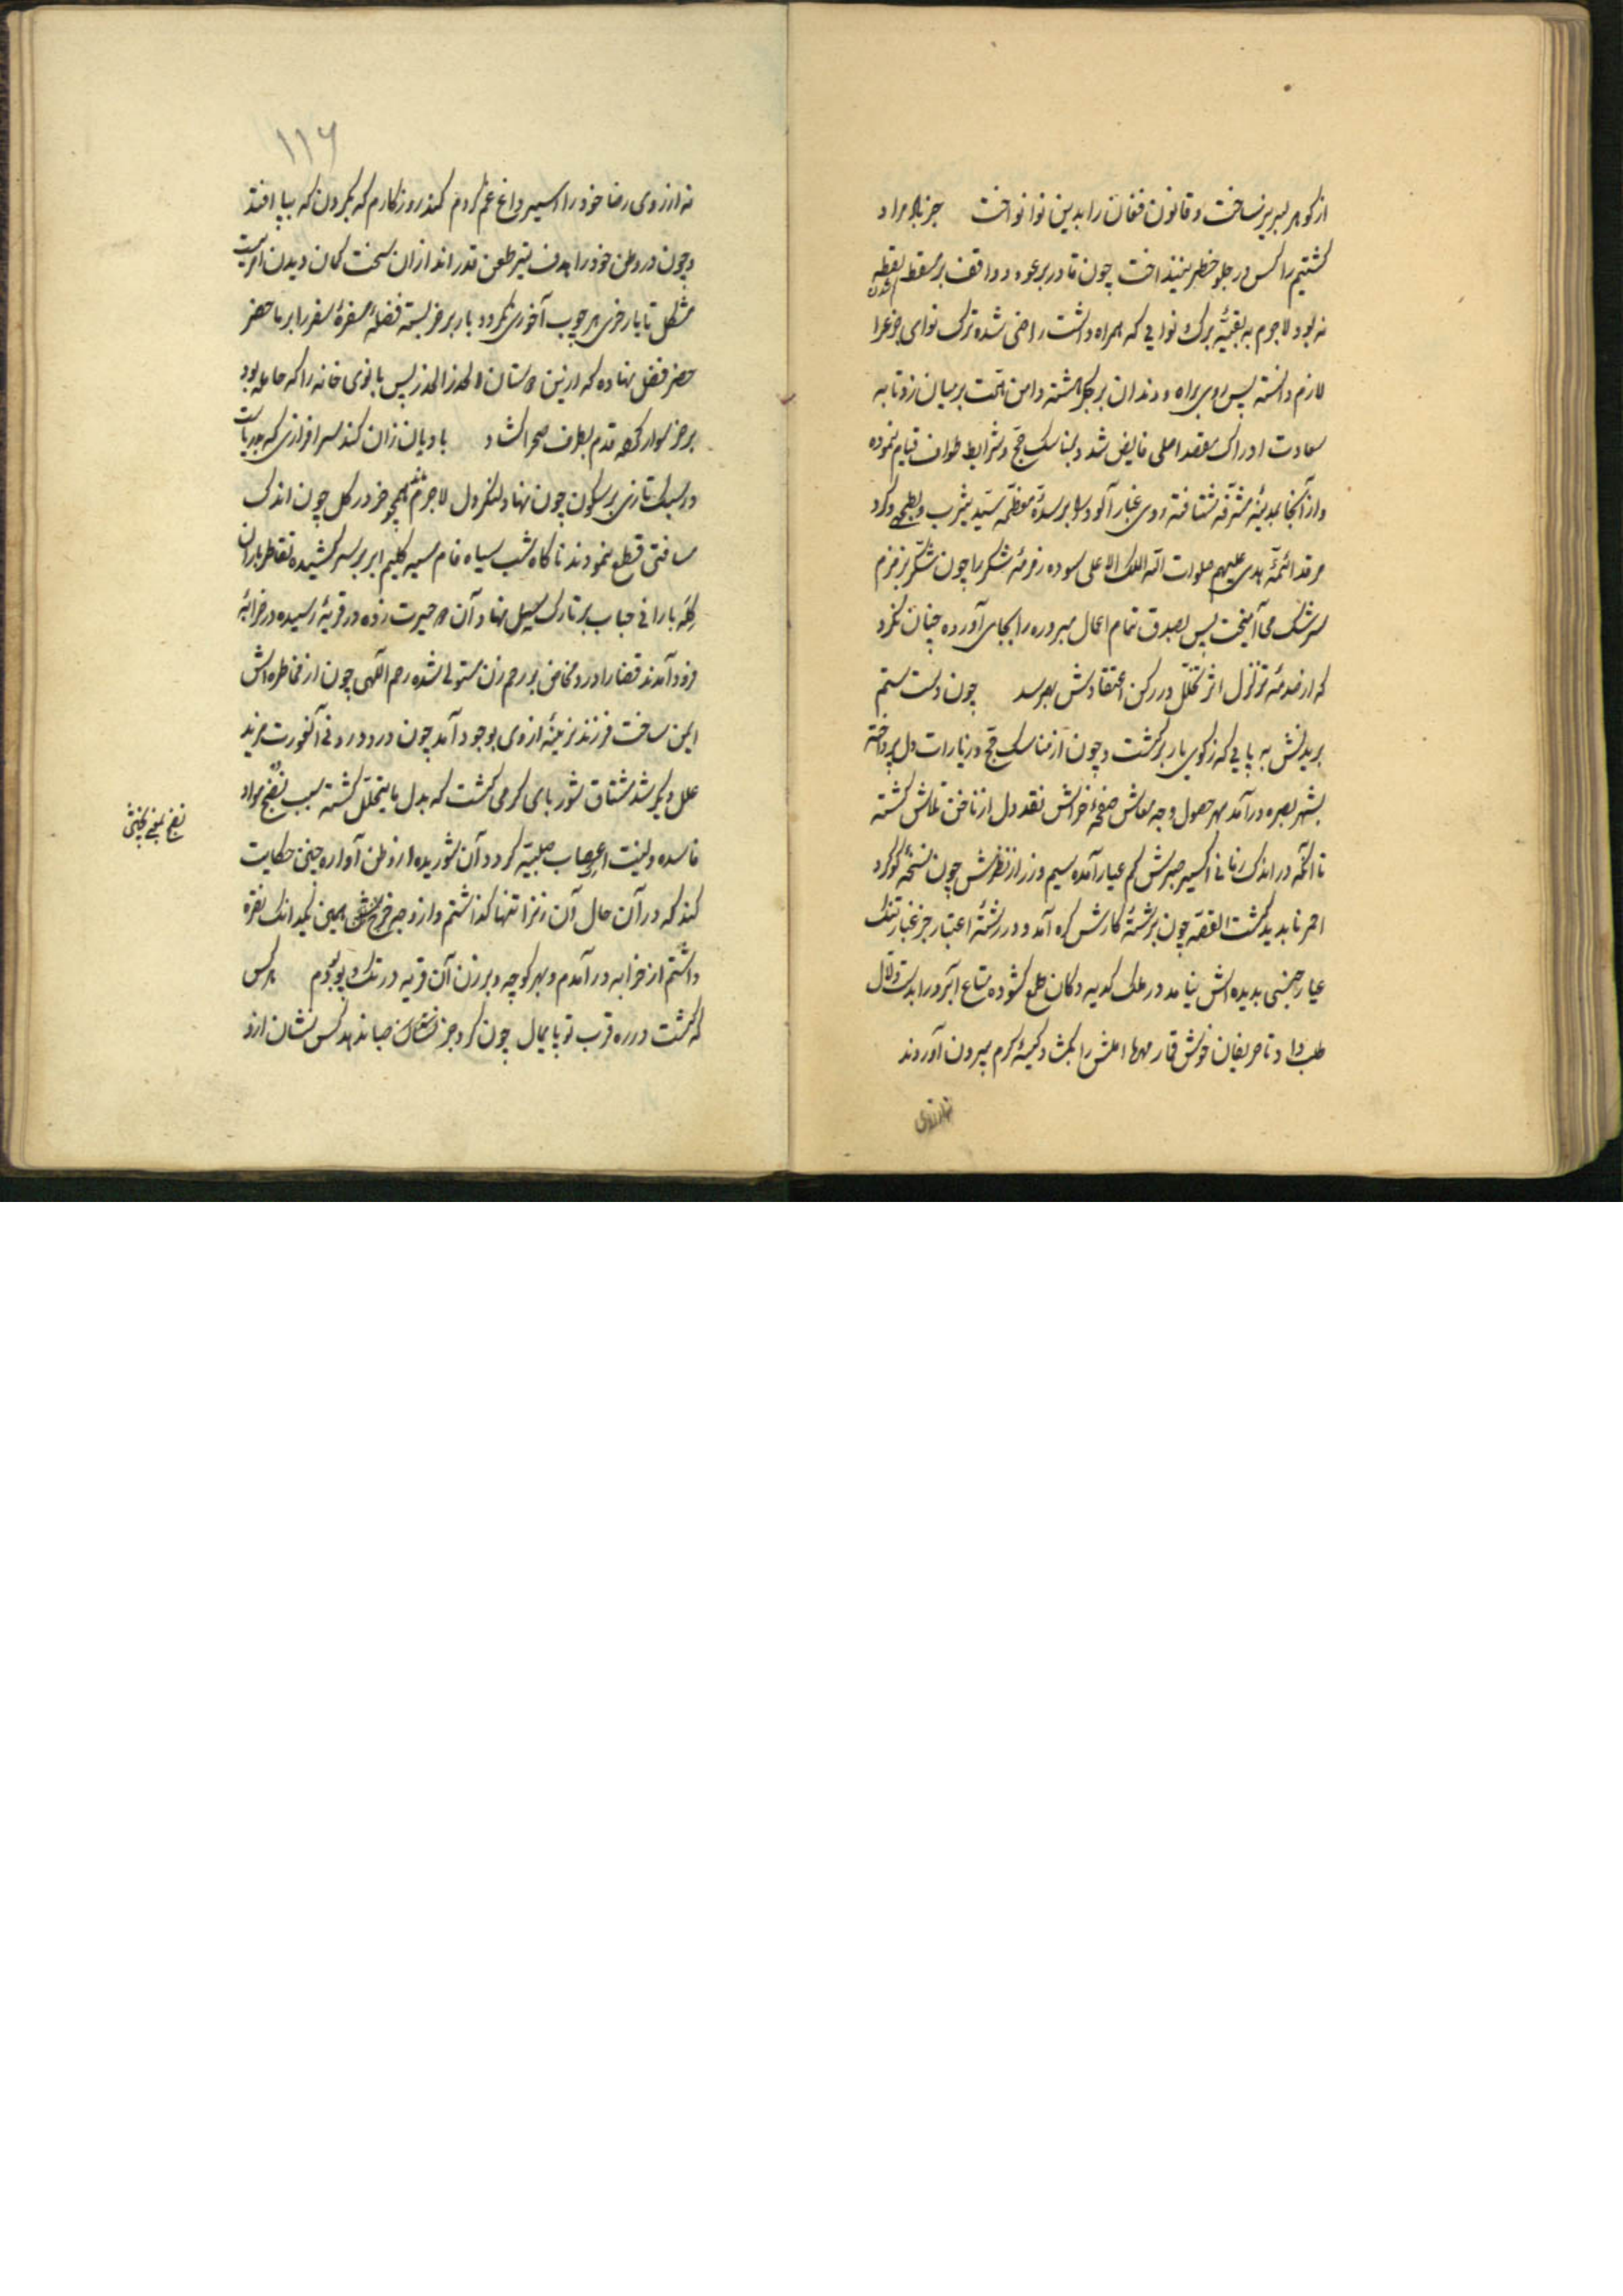 از گوهر لبریز ساخت و قانون فغان را بدین نوا نواخت جز ناامراد
کشتیم را کس در جلو خطر نینداخت چون قادر بر عود و واقف بر مسقط نقطه
نه بود لاجرم به بقیهٔ برک و نوایی که همراه داشت راضی شده ترک نوای
لازم دانسته پس روی براه و دندان بر جگر هشته دامن همّت بر میان زد تا به
سعادت ادراک مقصد اصلی فایض شد و بمناسک حجّ و شرایط طواف قیام نموده
و از آنجا بمدینهٔ مشرّفه شتافته روی غبار آلود را بر سدّهٔ معظّمه سیّد یثرب و بطحی و کرد
مرقد ائمّهٔ هدی علیهم صلوات اللّه الملک الاعلی سوده زمزمهٔ شکر را چون شکر بزمزم
سرشک می‌آمیخت پس بصدق تمام اعمال مبروره را بجای آورده چنان نکرد
که از صدمهٔ تزلزل اثر تخلّل در رکن اعتقادش بهم رسد چون دست ستم
بریدنش به پایی که ز کوی یار برگشت و چون از مناسک حجّ و زیارات دل پرداخته
بشهر بصره درآمد بهر حصول وجه معاش صفحهٔ خراش نقد دل از ناخن تلاش گشته
تا آنکه در اندک زمانی اکسیر صبرش کم عیار آمده سیم و زر از نظرش چون نسخهٔ گوگرد
احمر ناپدید گشت القصّه چون برشتهٔ کارش گره آمد و در رشتهٔ اعتبار جز غبار تنک
عیار جنسی بدیده‌اش نیامد در ملک کدیه دکان طمع گشوده متاع آبرو را بدست دلّال
طلب داد تا حریفان خوش قمار مهرها املش را بکمش و کیسهٔ کرم بیرون آوردند
۱۱۶
نه از روی رضا خود را اسیر داغ غم کردم کند روزگارم که بکردن که بپا افتد
و چون در وطن خود را هدف تیر طعن قدراندازان سخت کمان دیدن امریست
مشکل تا بار خری بر چوب آخوری نگردد بار بر خر بسته فضلهٔ سفرهٔ سفر را بر ماحضر
حضر فضل نهاده که از نین دستان الحذر الحذر پس بانوی خانه را که حامله بود
بر خر سوار کرده قدم بطرف صحرا گشاد بادیان زان کند سرافرازی که بدریاست
در سبک تازی بر سکون چون نهاد لنگر دل لاجرم همچو خر در گل چون اندک
مسافتی قطع نمودند ناگاه شب سیاه فام سیه گلیم ابر بر سر کشیده تقاطر باران
کلّه بارانی حباب بر تارک سیل نهاد آن دو حیرت زده در قریهٔ رسیده در خرابهٔ
فرود آمدند قضا را درد مخاض بر رحم زن مستولی شده رحم الهی چون از مخاطره‌اش
ایمن ساخت فرزند نرینهٔ از وی بوجود آمد چون درد و رد فی آنفورت مزید
علل دیگر شد مشتاق شوربای گرمی گشت که بدل ما یتحلّل گشته سبب نضج مواد
فاسده و لینت اعصاب صلبیّه گردد آن شوریده از وطن آواره چنین حکایت
کند که در آن حال آن زنرا تنها گذاشتم و از وجه خرج همین یکدانک نقره
داشتم از خرابه درآمدم و بهر کوچه و برزن آن قریه در تک و پو بودم هر کس
که گشت در ره قرب تو پایمال چون گرد جز صبا ندهد کس نشان ازو